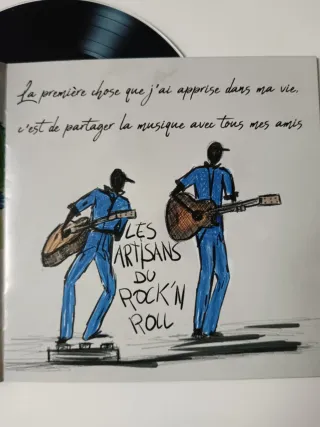 La première chose que j'ai apprise dans ma vie,
c'est de partager la musique avec tous mes amis
LES
ARTISANS
DU
ROCK'N
ROLL